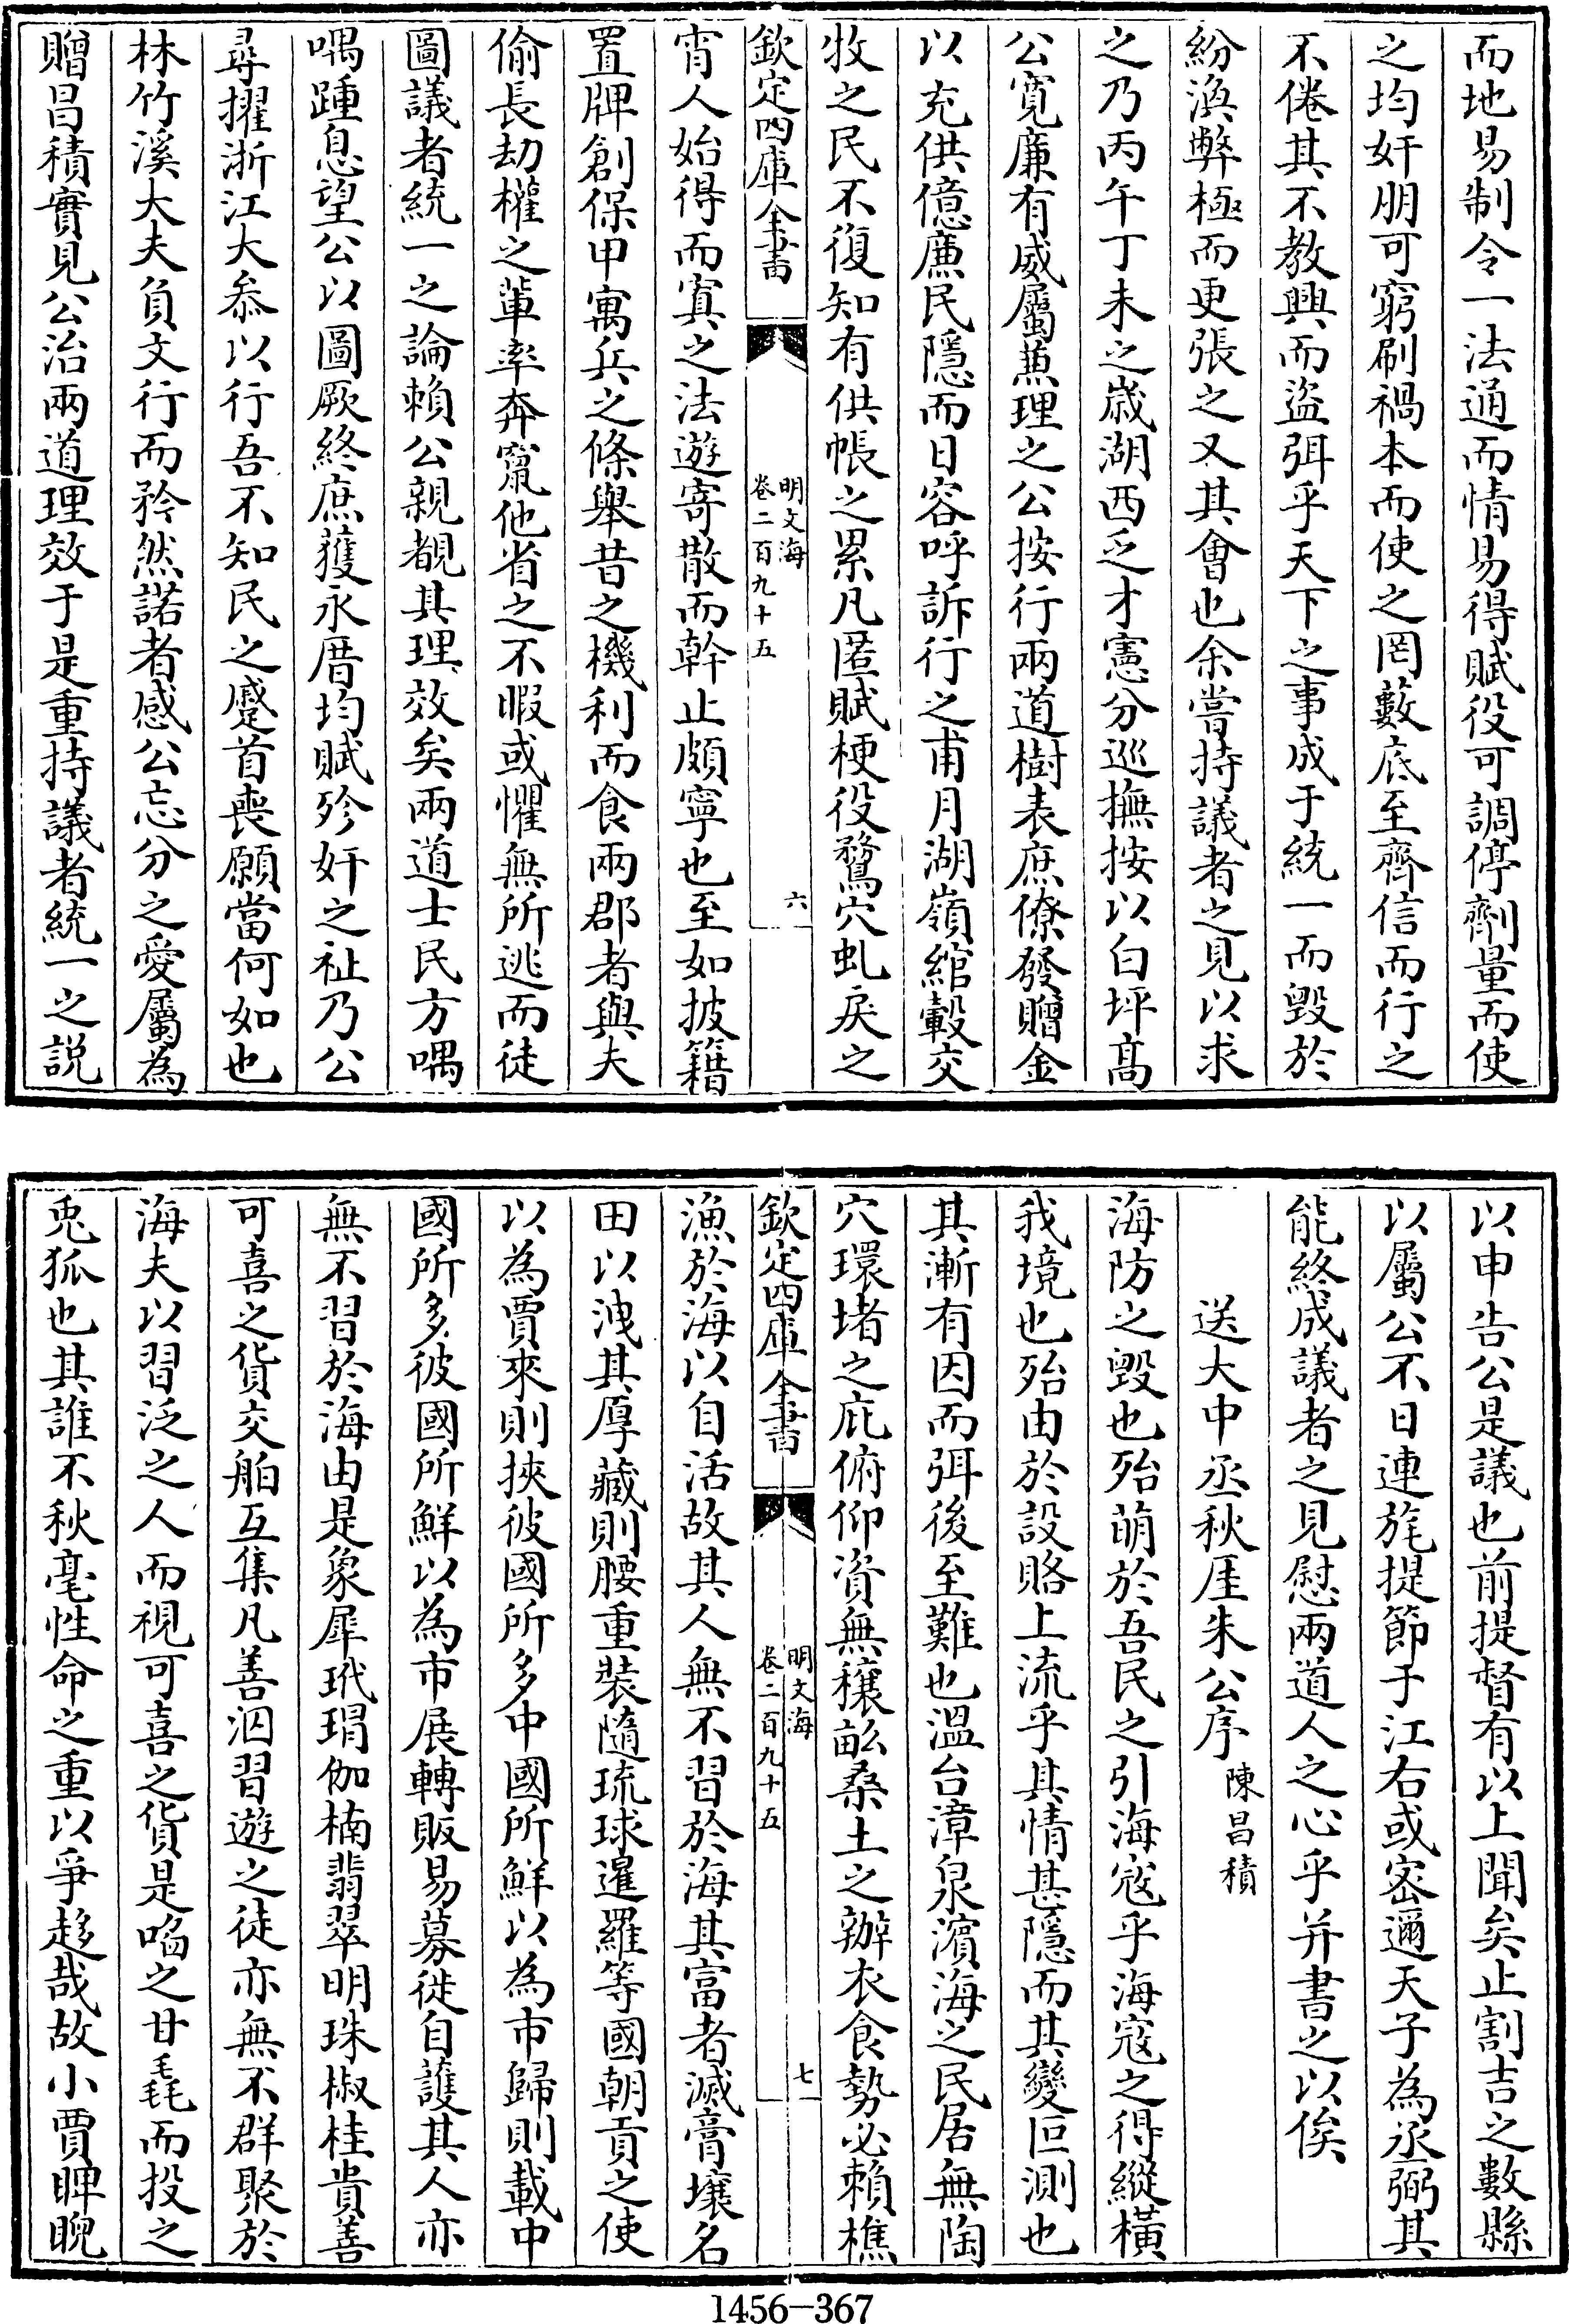 而地易制令一法通而情易得賦役可調停劑量而使
之均奸朋可窮刷禍本而使之罔藪底至齊信而行之
不倦其不教興而盜弭乎天下之事成于統一而毀於
紛渙弊極而更張之又其會也余嘗持議者之見以求
之乃丙午丁未之歲湖西乏才憲分巡撫按以白坪髙
公寛亷有威屬蕉理之公按行兩道樹表庶僚發贈金
以充供億亷民隱而日容呼訴行之甫月湖嶺綰轂交
牧之民不復知有供帳之累凡匿賦梗役鶩穴虬戾之
欽定四庫全書
明文海
卷二百九十五
六
宵人始得而寘之法遊寄散而幹止頗寧也至如披籍
置牌創保甲寓兵之條舉昔之機利而食兩郡者與夫
偷長刼權之輩率奔竄他省之不暇或懼無所逃而徒
圖議者統一之論賴公親覩其理效矣兩道士民方喁
喁踵息望公以圖厥終庶獲永厝均賦殄奸之祉乃公
尋擢浙江大叅以行吾不知民之蹙首喪願當何如也
林竹溪大夫負文行而矜然諾者感公忘分之愛屬為
贈昌積實見公治兩道理效于是重持議者統一之說
以申告公是議也前提督有以上聞矣止割吉之數縣
以屬公不日連旄提節于江右或密邇天子為丞弼其
能終成議者之見慰兩道人之心乎并書之以俟
送大中丞秋厓朱公序 陳昌積
海防之毀也殆萌於吾民之引海寇乎海寇之得縱橫
我境也殆由於設賂上流乎其情甚隱而其變叵測也
其漸有因而弭後至難也溫台漳泉濱海之民居無陶
穴環堵之庇俯仰資無穰畝桑土之辦衣食勢必賴樵
欽定四庫全書
明文海
卷二百九十五
七
漁於海以自活故其人無不習於海其富者滅膏壤名
田以洩其厚藏則腰重裝隨琉球暹羅等國朝貢之使
以為賈來則挾彼國所多中國所鮮以為市歸則載中
國所多彼國所鮮以為市展轉販易募徙自護其人亦
無不習於海由是象犀玳瑁伽楠翡翠明珠椒桂貴善
可喜之貨交舶互集凡善泅習遊之徒亦無不群聚於
海夫以習泛之人而視可喜之貨是啗之甘毳而投之
兎狐也其誰不秋毫性命之重以爭趍哉故小賈睥睨
1456-367